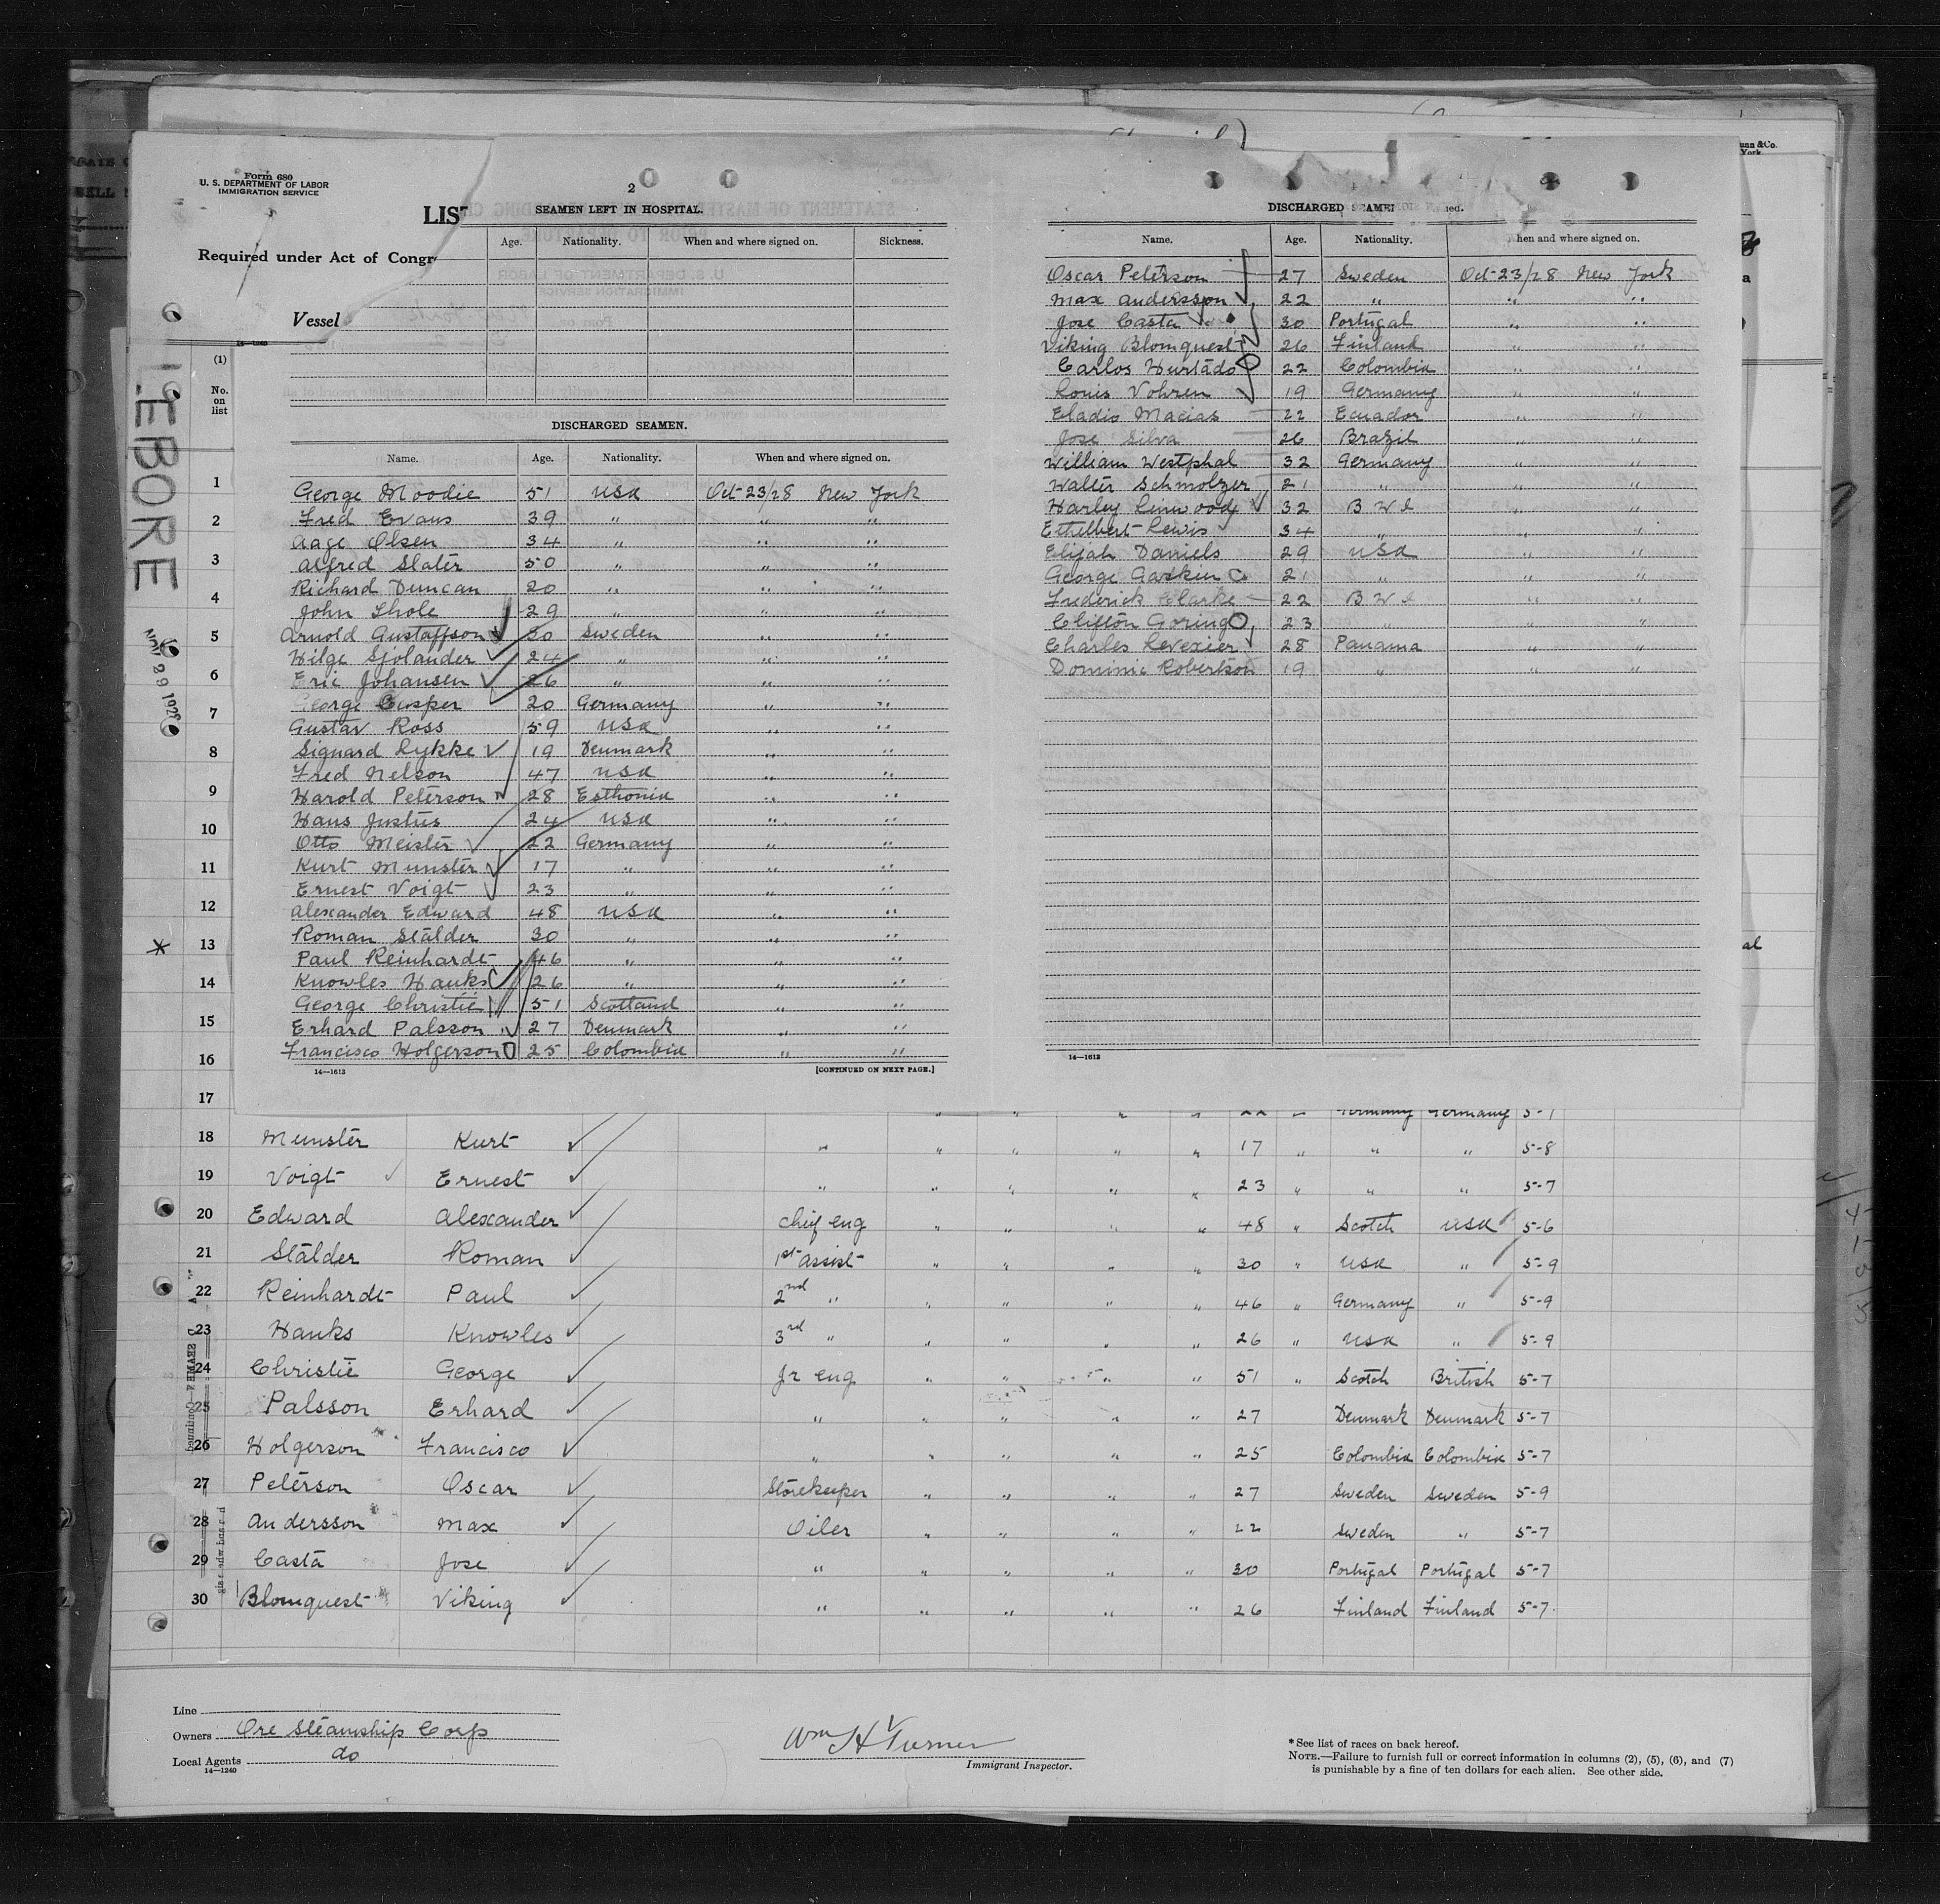 Form 680
U. S. DEPARTMENT OF LABOR
IMMIGRATION SERVICE
LIST
Required under Act of Congr
Vessel
(1)
No.
on
list
LEBORE
NOV 29 1928
2
SEAMEN LEFT IN HOSPITAL.
Age. Nationality. When and where signed on. Sickness.
DISCHARGED SEAMEN.
Name. Age. Nationality. When and where signed on.
George Moodie 51 USA Oct-23/28 New York
Fred Evans 39 " " "
Aage Olsen 34 " " "
Alfred Slater 50 " " "
Richard Duncan 20 " " "
John Thole 29 " " "
Arnold Gustaffson 30 Sweden " "
Hilge Sjolander 24 " " "
Eric Johansen 26 " " "
George Casper 20 Germany " "
Gustav Ross 59 USA " "
Signard Lykke 19 Denmark " "
Fred Nelson 47 USA " "
Harold Peterson 28 Esthonia " "
Hans Justus 24 USA " "
Otto Meister 22 Germany " "
Kurt Munster 17 " " "
Ernest Voigt 23 " " "
Alexander Edward 48 USA " "
Roman Stalder 30 " " "
Paul Reinhardt 46 " " "
Knowles Hanks 26 " " "
George Christie 51 Scotland " "
Erhard Palsson 27 Denmark " "
Francisco Holgerson 25 Colombia " "
14—1613 [CONTINUED ON NEXT PAGE.]
DISCHARGED SEAMEN
Name. Age. Nationality. When and where signed on.
Oscar Peterson 27 Sweden Oct-23/28 New York
Max Andersson 22 " " "
Jose Casta 30 Portugal " "
Viking Blomquest 26 Finland " "
Carlos Hurtado 22 Colombia " "
Louis Vohren 19 Germany " "
Eladio Macias 22 Ecuador " "
Jose Silva 26 Brazil " "
William Westphal 32 Germany " "
Walter Schmolzer 21 " " "
Harley Linwood 32 B W I " "
Ethelbert Lewis 34 " " "
Elijah Daniels 29 USA " "
George Gaskin 21 " " "
Frederick Clarke 22 B W I " "
Clifton Goring 23 " " "
Charles Levexier 28 Panama " "
Dominic Robertson 19 " " "
14—1613
1
2
3
4
5
6
7
8
9
10
11
12
13
14
15
16
17 22 " Germany Germany 5-1
18 Munster Kurt " " " " " 17 " " " 5-8
19 Voigt Ernest " " " " " 23 " " " 5-7
20 Edward Alexander Chief eng " " " " 48 " Scotch USA 5-6
21 Stalder Roman 1st Assist " " " " 30 " USA " 5-9
22 Reinhardt Paul 2nd " " " " " 46 " Germany " 5-9
23 Hanks Knowles 3rd " " " " " 26 " USA " 5-9
24 Christie George Jr eng " " " " 51 " Scotch British 5-7
25 Palsson Erhard " " " " " 27 Denmark Denmark 5-7
26 Holgerson Francisco " " " " " 25 Colombia Colombia 5-7
27 Peterson Oscar Storekeeper " " " " 27 Sweden Sweden 5-9
28 Andersson Max Oiler " " " " 22 Sweden " 5-7
29 Casta Jose " " " " " 30 Portugal Portugal 5-7
30 Blomquest Viking " " " " " 26 Finland Finland 5-7
Line
Owners Ore Steamship Corp
Local Agents do
14—1240
Wm H Turner
Immigrant Inspector.
* See list of races on back hereof.
NOTE.—Failure to furnish full or correct information in columns (2), (5), (6), and (7)
is punishable by a fine of ten dollars for each alien. See other side.